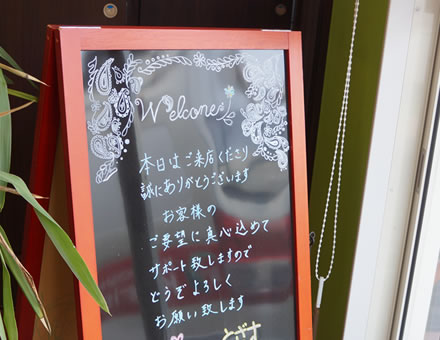 Welcome
本日はご来店くださり
誠にありがとうございます
お客様の
ご要望に真心込めて
サポート致しますので
どうぞよろしく
お願い致します